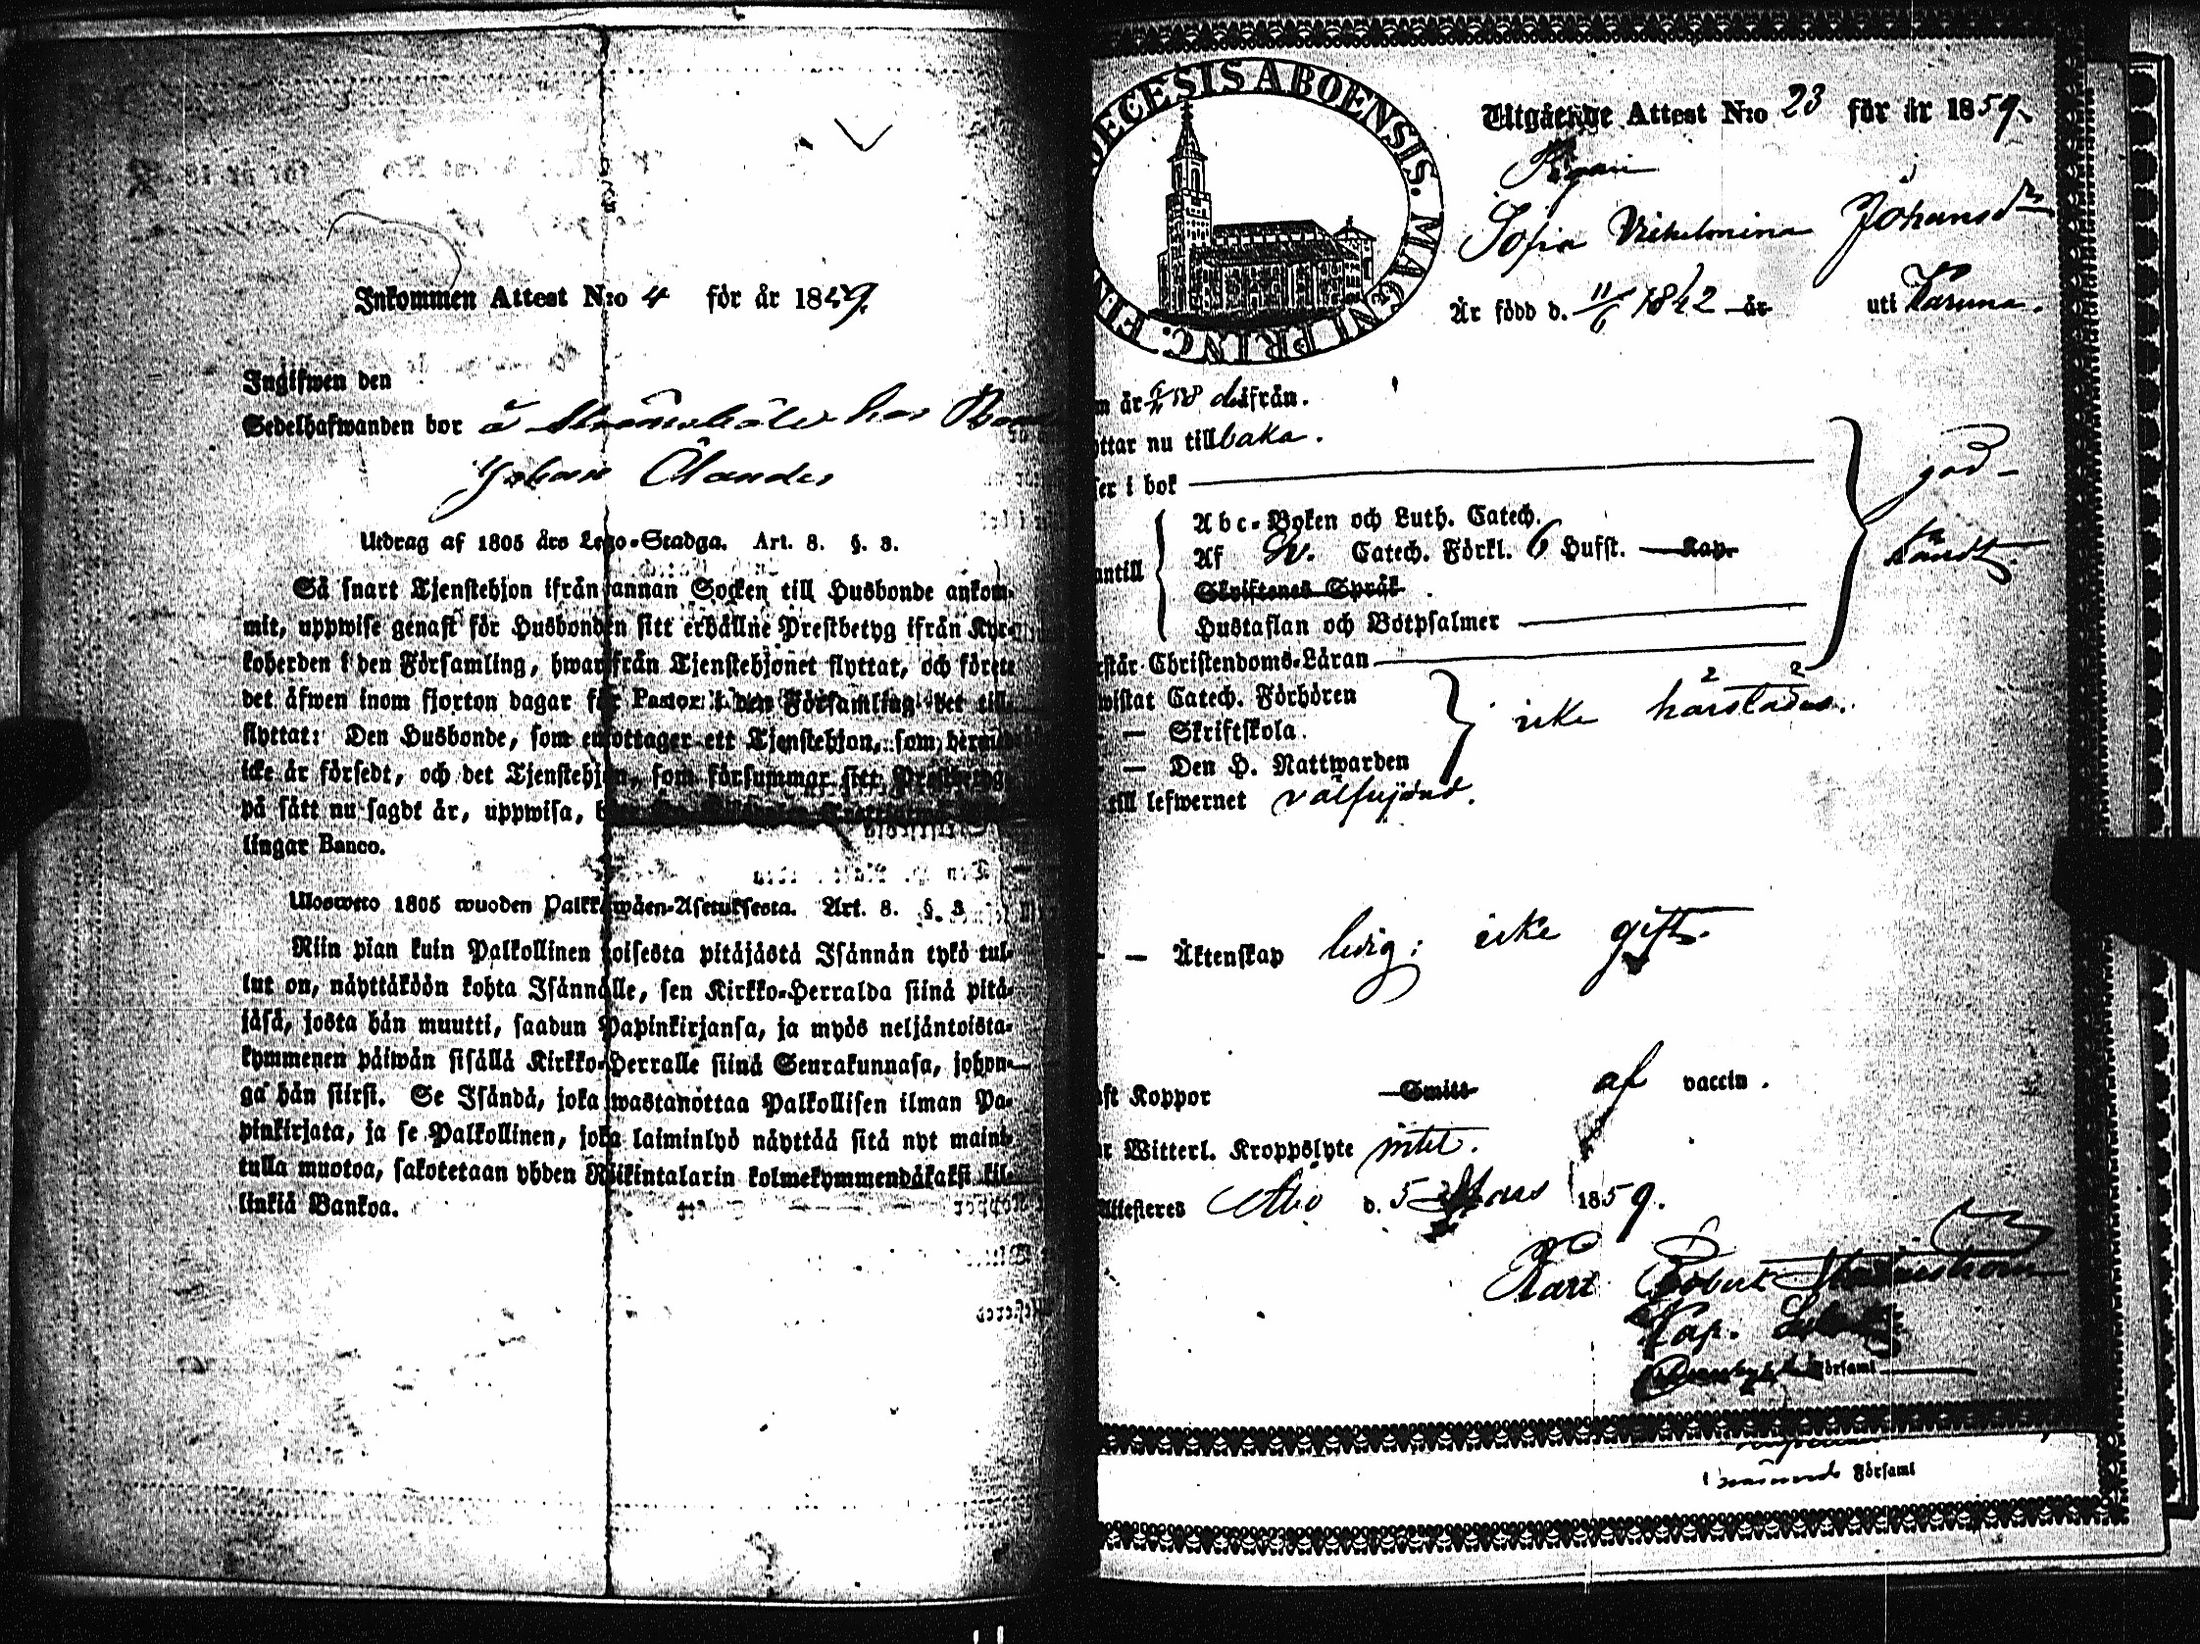 Inkommen Attest N:o 4 för år 1859.
Ingifwen den
Sedelhafwanden bor å hos
Johan Ölander
Utdrag af 1805 års Lego-Stadga. Art. 8. §. 3.
Så snart Tjenstehjon ifrån annan Socken till Husbonde ankom-
mit, uppwise genast för Husbonden sitt erhållne Prestbetyg ifrån Kyr-
koherden i den Församling, hwarifrån Tjenstehjonet flyttat, och förete
det äfwen inom fjorton dagar för Pastor i den Församling det till-
flyttat: Den Husbonde, som emottager ett Tjenstehjon, som härmed
icke är försedt, och det Tjenstehjon, som försummar sitt Prestbetyg
på sätt nu sagdt är, uppwisa,
lingar Banco.
Uloswetto 1805 wuoden Palkkawäen-Asetuksesta. Art. 8. §. 3.
Niin pian kuin Palkollinen toisesta pitäjästä Isännän tykö tul-
lut on, näyttäköön kohta Isännälle, sen Kirkko-Herralda siinä pitä-
jäsä, josta hän muutti, saadun Papinkirjansa, ja myös neljäntoista-
kymmenen päiwän sisällä Kirkko-Herralle siinä Seurakunnasa, johon-
ga hän siirsi. Se Isändä, joka wastanottaa Palkollisen ilman Pa-
pinkirjata, ja se Palkollinen, joka laiminlyö näyttää sitä nyt maini-
tulla muotoa, sakotetaan yhden Riikintalarin kolmekymmendäkaksi kil-
linkiä Bankoa.
DECESIS ABOENSIS. MAGNI PRINC. FIN
Utgående Attest N:o 23 för år 1859.
Pigan
Sofia Vilhelmina Johansdr
Är född d. 11/6 1842 år uti Karuna.
m år 18 härifrån.
ottar nu tillbaka.
ser i bok
Abc-Boken och Luth. Catech.
antill Af Sv. Catech. Förkl. 6 Hufst. Kap.
Skriftenes Språk
Hustaflan och Botpsalmer
rstår Christendoms-Läran
god-
kändt.
wistat Catech. Förhören
— Skriftskola
— Den H. Nattwarden
icke härstädes.
till lefwernet välfrejdad.
— — Äktenskap ledig; icke gift.
aft Koppor Smitt af vaccin.
ar Witterl. Kroppslyte intet.
Attesteras Åbo d. 5 Mars 1859.
Karl Robert
Kap.
Församl
Församl